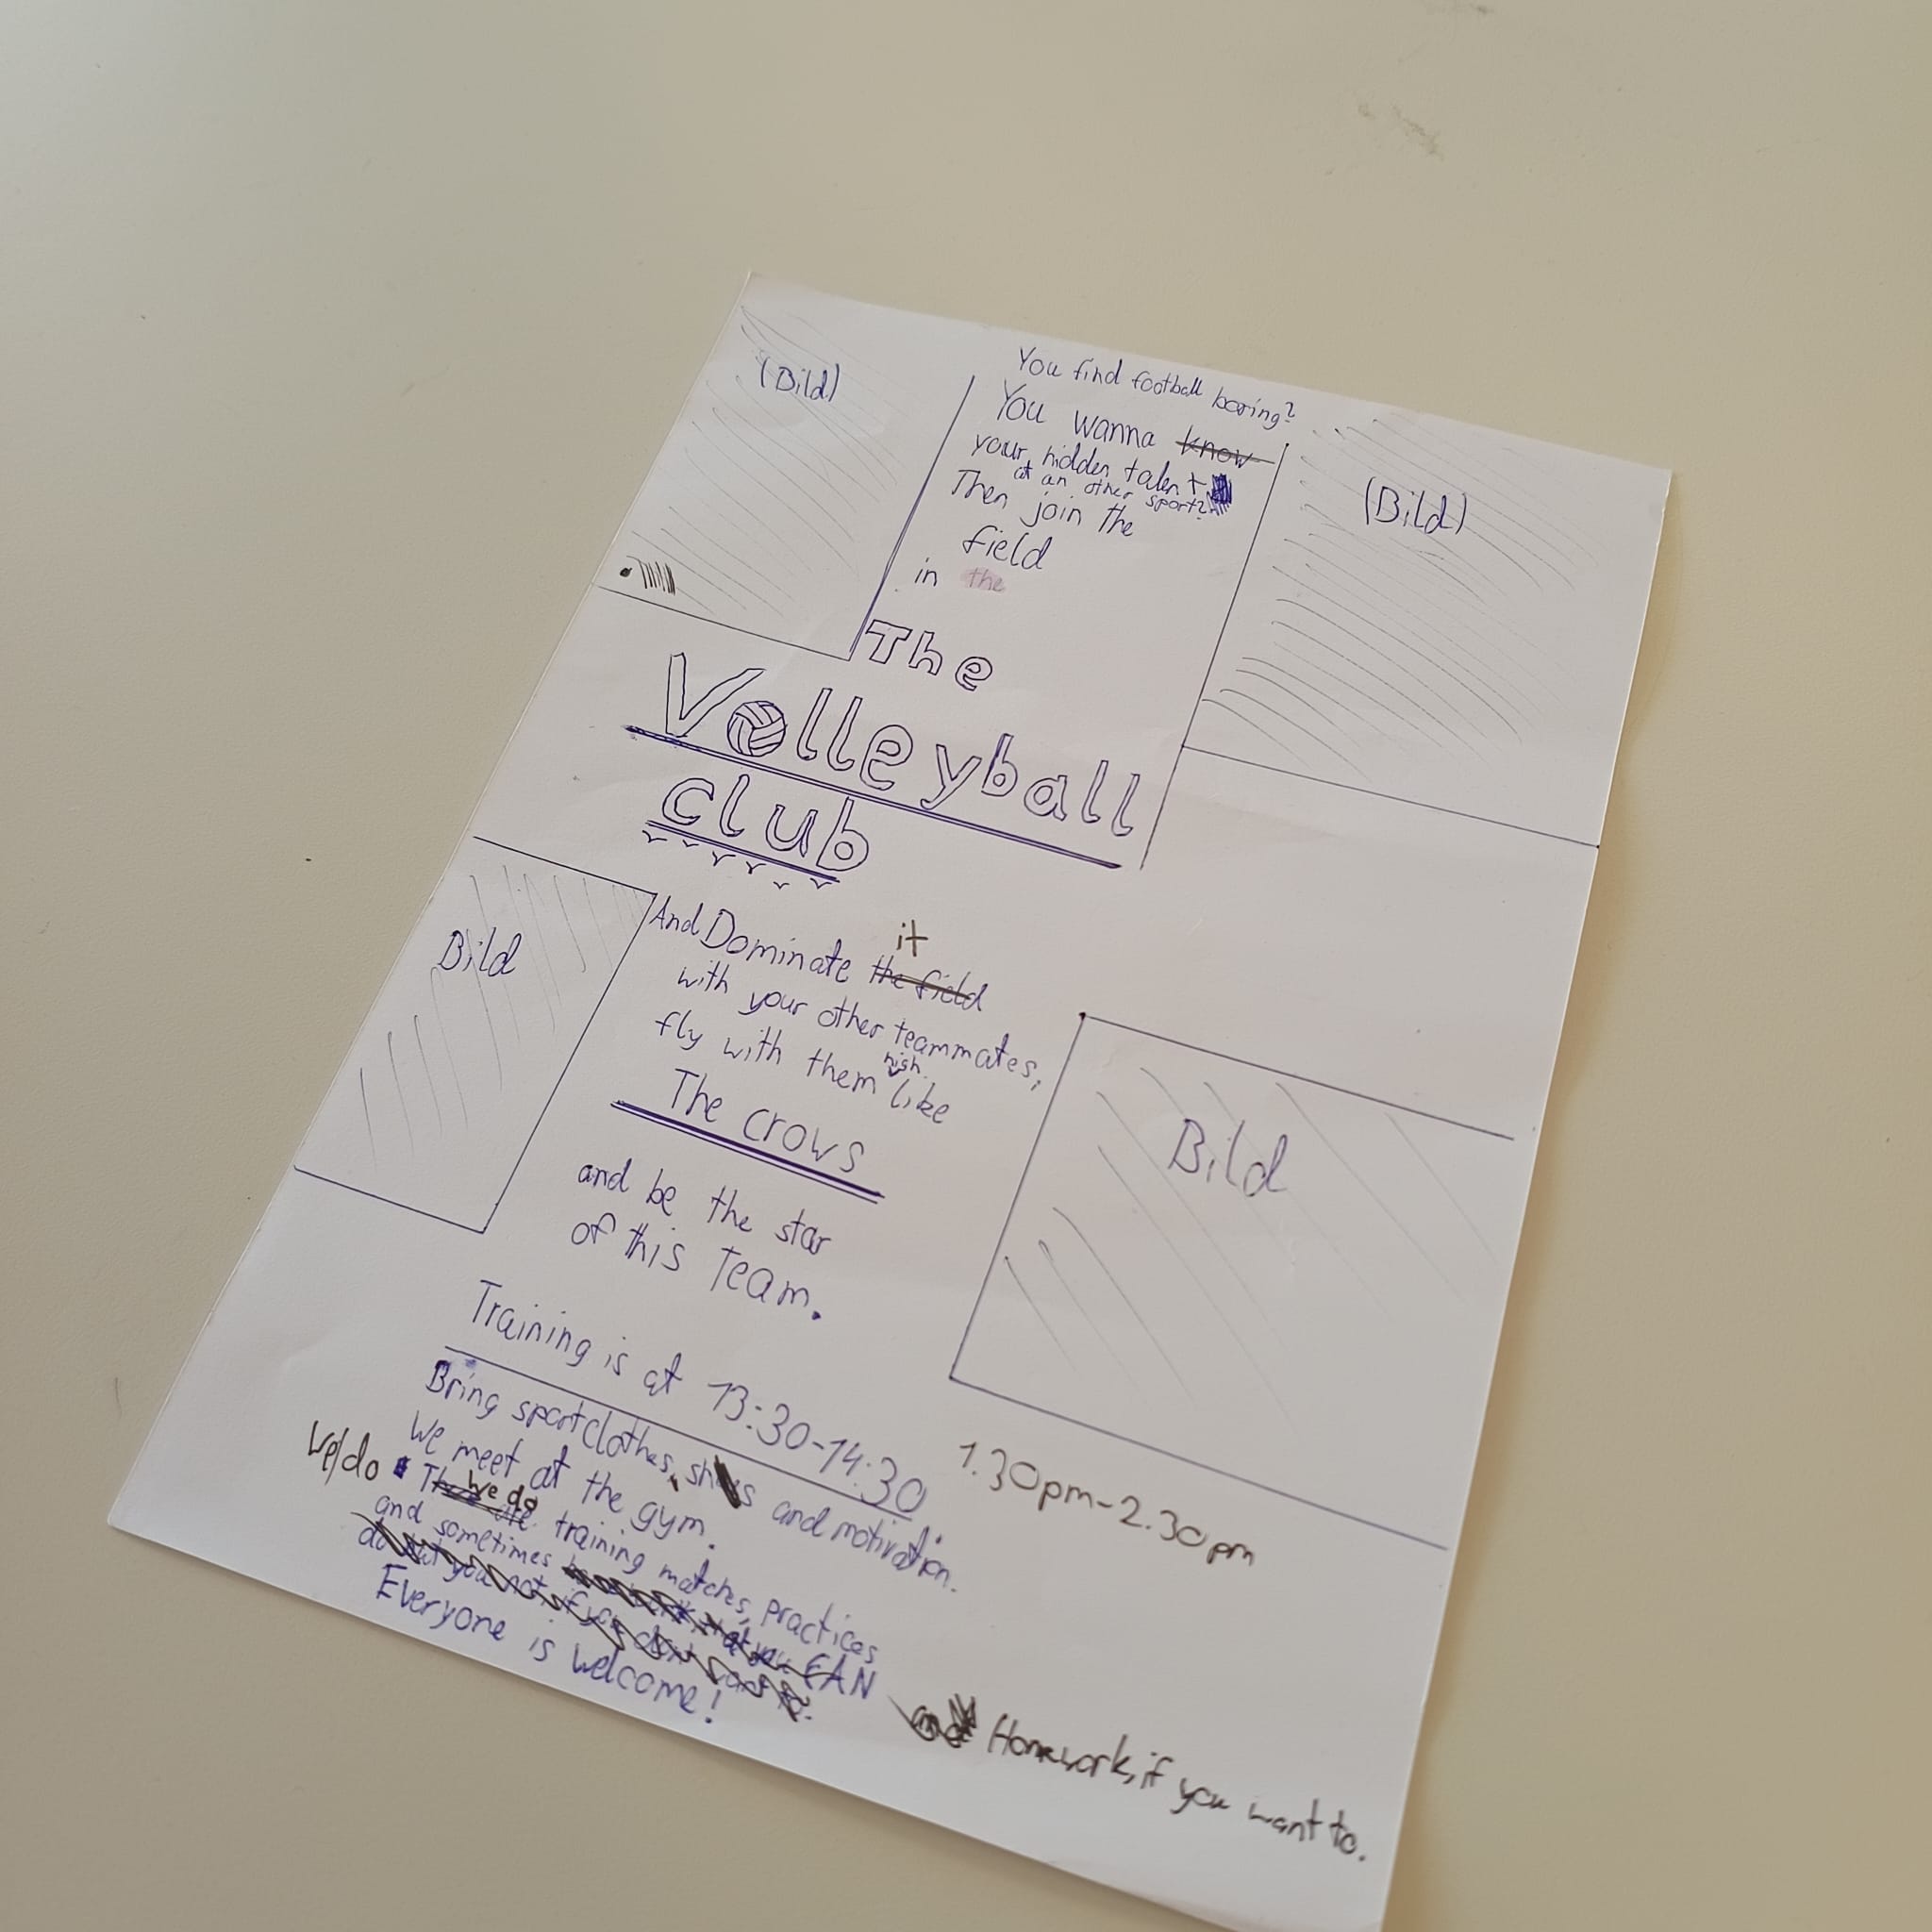 (Bild)
You find football boring?
You wanna know
your hidden talent
at an other sport?
Then join the
field
in the
(Bild)
The
Volleyball
club
Bild
And Dominate it
the field
with your other teammates,
fly with them high like
The crows
and be the star
of this Team.
Bild
Training is at 13:30-14:30
1.30pm-2.30pm
Bring sportclothes, and motivation.
We meet at the gym.
We do
we do training matches, practices
and sometimes
Homework, if you want to.
Everyone is welcome!